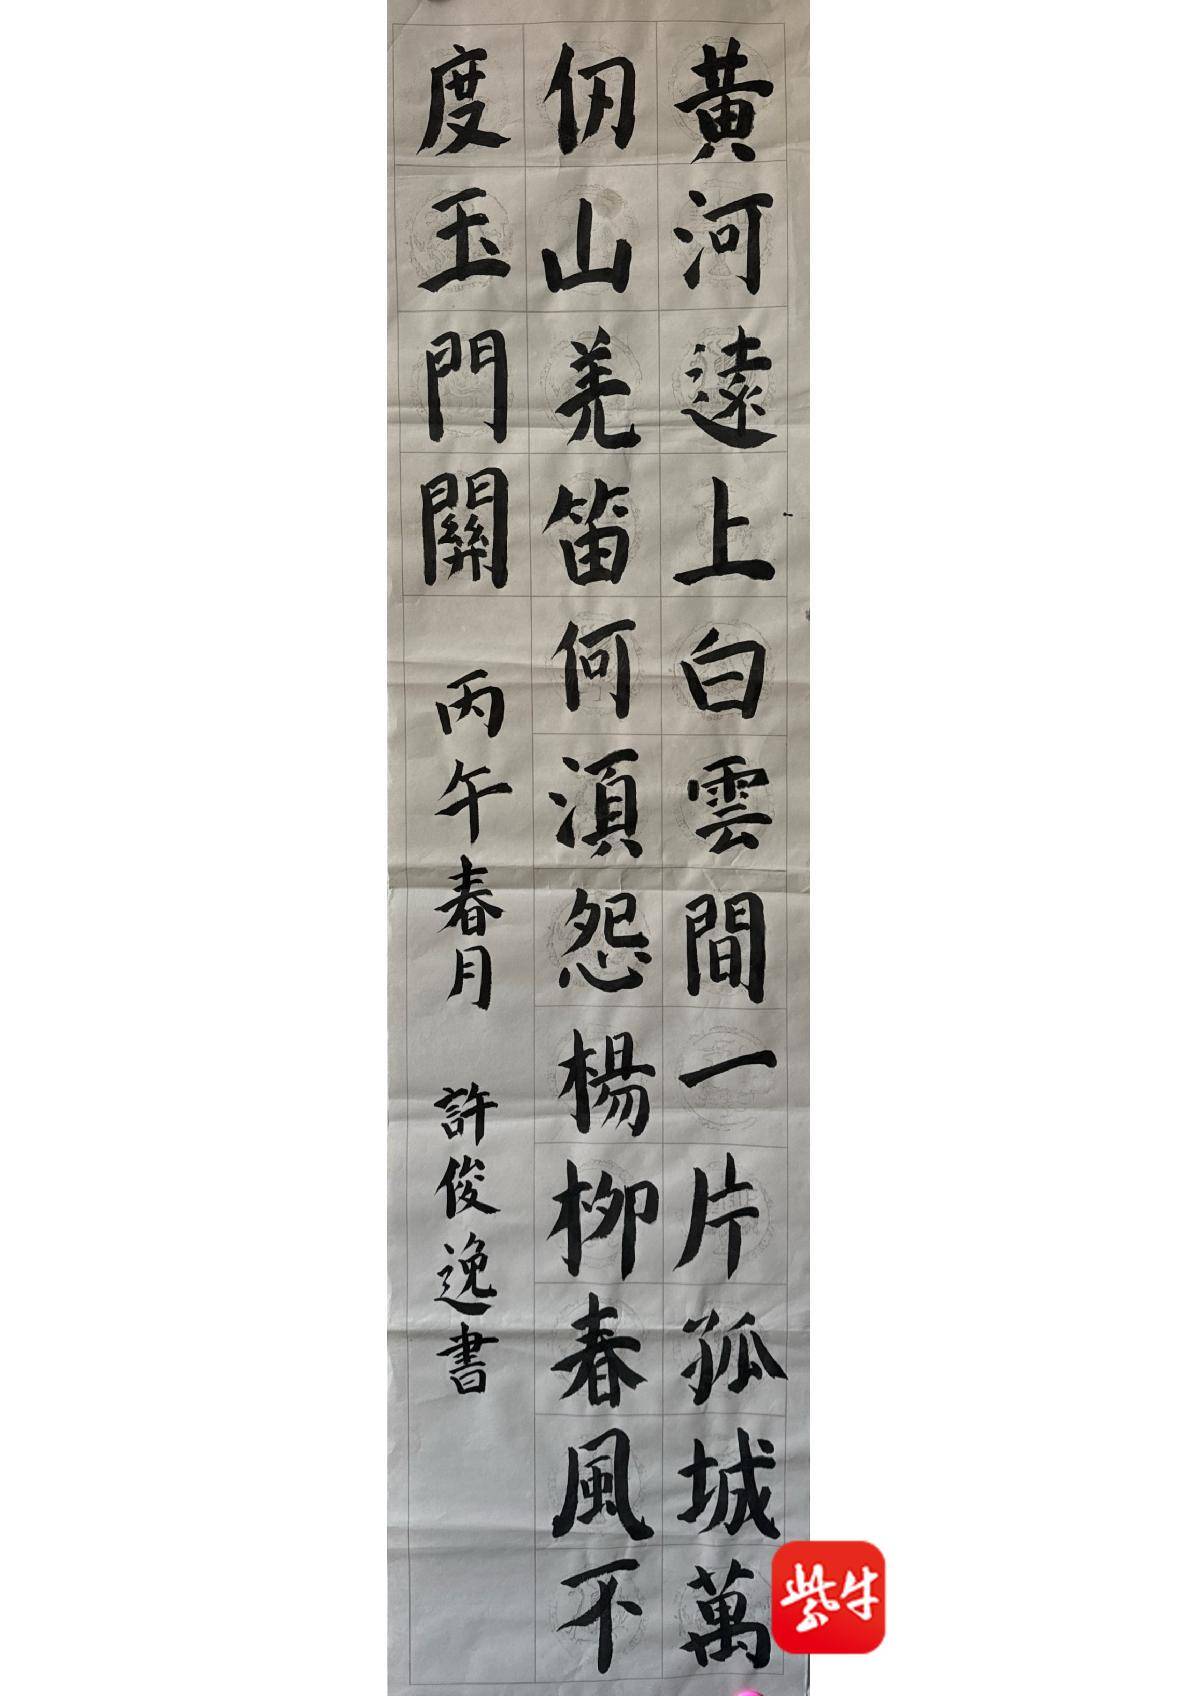 黃河遠上白雲間一片孤城萬
仞山羌笛何湏怨楊柳春風不
度玉門關
丙午春月
許俊逸書
紫牛